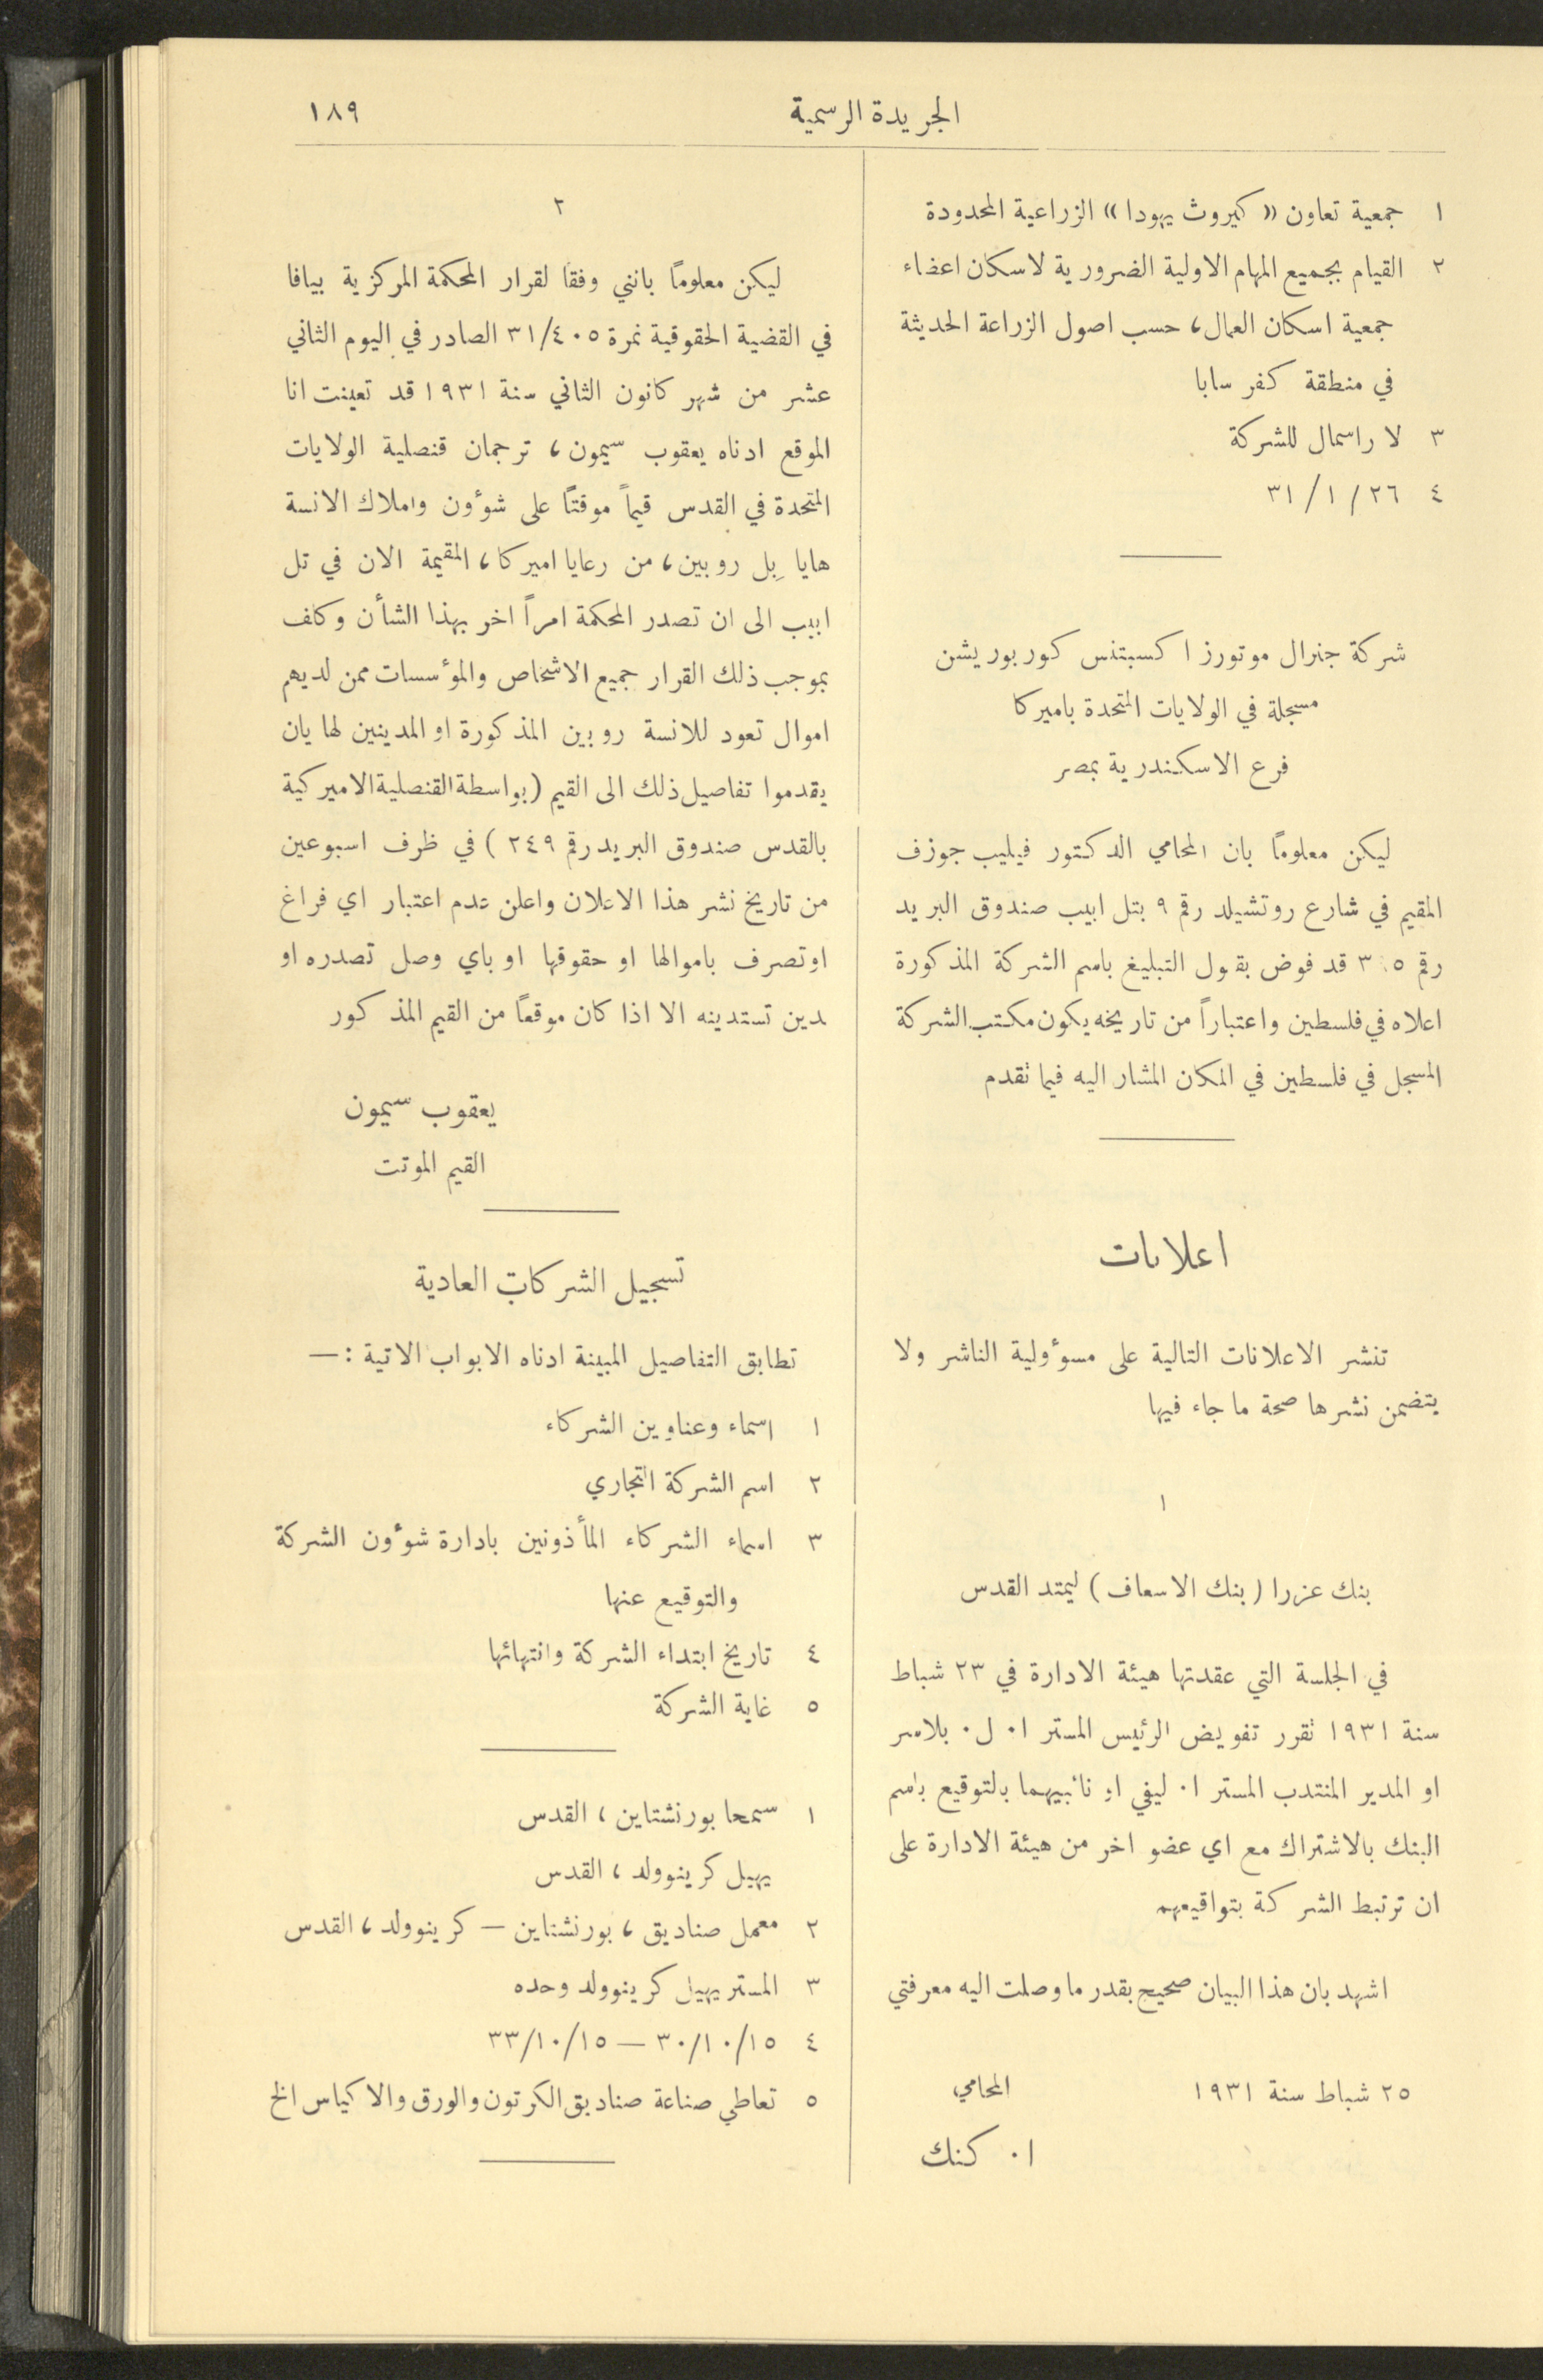 الجريدة الرسمية
١٨٩
١ جمعية تعاون « كيروث يهودا » الزراعية المحدودة
٢ القيام بجميع المهام الاولية الضرورية لاسكان اعضاء
جمعية اسكان العمال، حسب اصول الزراعة الحديثة
في منطقة كفر سابا
٣ لا راسمال للشركة
٤ ٢٦ / ١ / ٣١
شركة جنرال موتورز اكسبتنس كوربوريشن
مسجلة في الولايات المتحدة باميركا
فرع الاسكندرية بمصر
ليكن معلومًا بان المحامي الدكتور فيليب جوزف
المقيم في شارع روتشيلد رقم ٩ بتل ابيب صندوق البريد
رقم قد فوض بقبول التبليغ باسم الشركة المذكورة
اعلاه في فلسطين واعتباراً من تاريخه يكون مكتب الشركة
المسجل في فلسطين في المكان المشار اليه فيما تقدم
اعلانات
تنشر الاعلانات التالية على مسوءولية الناشر ولا
يتضمن نشرها صحة ما جاء فيها
١
بنك عزرا ( بنك الاسعاف ) ليمتد القدس
في الجلسة التي عقدتها هيئة الادارة في ٢٣ شباط
سنة ١٩٣١ تقرر تفويض الرئيس المستر ا٠ ل٠ بلامر
او المدير المنتدب المستر ا٠ ليفي او نائبيهما بالتوقيع باسم
البنك بالاشتراك مع اي عضو اخر من هيئة الادارة على
ان ترتبط الشركة بتواقيعهم
اشهد بان هذا البيان صحيح بقدر ما وصلت اليه معرفتي
٢٥ شباط سنة ١٩٣١ المحامي
ا٠ كنك
٢
ليكن معلومًا بانني وفقًا لقرار المحكمة المركزية بيافا
في القضية الحقوقية نمرة ٣١/٤٠٥ الصادر في اليوم الثاني
عشر من شهر كانون الثاني سنة ١٩٣١ قد تعينت انا
الموقع ادناه يعقوب سيمون، ترجمان قنصلية الولايات
المتحدة في القدس قيماً موقتًا على شوءون واملاك الانسة
هايا بِل روبين، من رعايا اميركا، المقيمة الان في تل
ابيب الى ان تصدر المحكمة امراً اخر بهذا الشأن وكلف
بموجب ذلك القرار جميع الاشخاص والمؤسسات ممن لديهم
اموال تعود للانسة روبين المذكورة او المدينين لها بان
يقدموا تفاصيل ذلك الى القيم (بواسطة القنصلية الاميركية
بالقدس صندوق البريد رقم ٢٤٩ ) في ظرف اسبوعين
من تاريخ نشر هذا الاعلان واعلن عدم اعتبار اي فراغ
او تصرف باموالها او حقوقها او باي وصل تصدره او
بدين تستدينه الا اذا كان موقعًا من القيم المذكور
يعقوب سيمون
القيم الموقت
تسجيل الشركات العادية
تطابق التفاصيل المبينة ادناه الابواب الاتية :—
١ اسماء وعناوين الشركاء
٢ اسم الشركة التجاري
٣ اسماء الشركاء المأذونين بادارة شوءون الشركة
والتوقيع عنها
٤ تاريخ ابتداء الشركة وانتهائها
٥ غاية الشركة
١ سمحا بورنشتاين، القدس
يهيل كرينوولد، القدس
٢ معمل صناديق، بورنشتاين — كرينوولد، القدس
٣ المستر يهيل كرينوولد وحده
٤ ٣٠/١٠/١٥ — ٣٣/١٠/١٥
٥ تعاطي صناعة صناديق الكرتون والورق والاكياس الخ